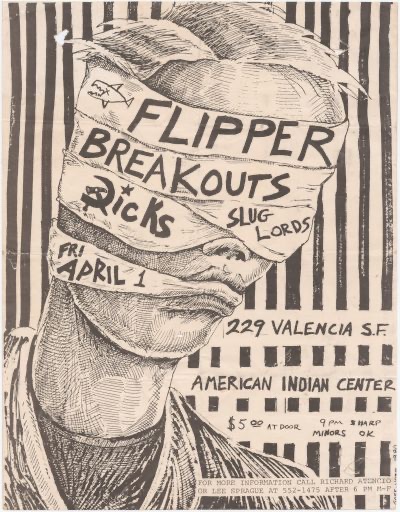 FLIPPER
BREAKOUTS
DicKs
SLUG
LORDS
FRI
APRIL 1
229 VALENCIA S.F.
AMERICAN INDIAN CENTER
$5.00 AT DOOR
9 PM SHARP
MINORS OK
FOR MORE INFORMATION CALL RICHARD ATENCIO
OR LEE SPRAGUE AT 552-1475 AFTER 6 PM M-F